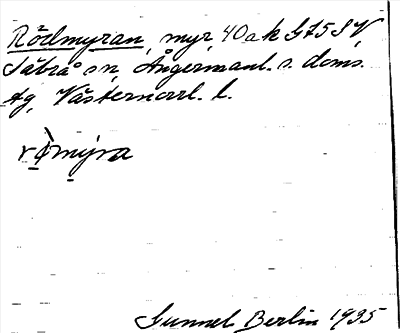 Rödmyran, myr, 40 a k G75SV
Säbrå sn, Ångermanl. s. doms.
tg, Västernorrl. l.
rø̀mýra
Gunnel Berlin 1935